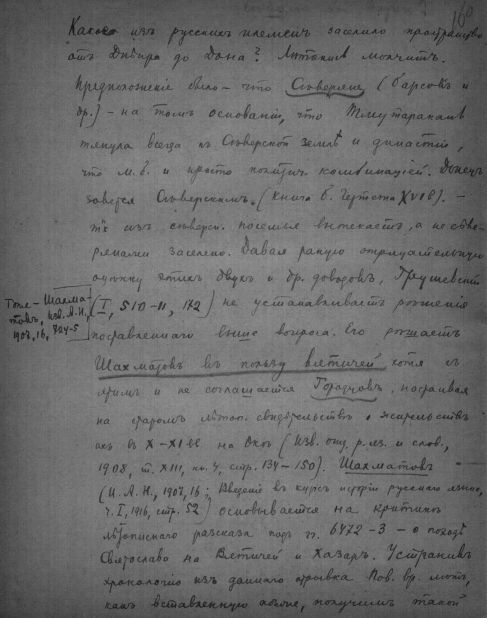 160
Какое изъ русскихъ племенъ заселило пространство
отъ Днѣпра до Дона? Лѣтопись молчитъ.
Предположеніе было – что Сѣверяне (Барсовъ и
др.) – на томъ основаніи, что Тмутаракань
тянула всегда къ Сѣверской землѣ и династіи,
что м. б. и просто политич. комбинаціей. Донецъ
зовется Сѣверскимъ. (Книга б. Чертежа XVI в). –
т. к. изъ сѣверск. поселье вытекаетъ, а не сѣве-
рянами заселено. Давая такую отрицательную
оцѣнку этихъ двухъ и др. доводовъ, Грушевскій
(I, 510–11, 172) не устанавливаетъ рѣшенія
Тоже – Шахма-
товъ, Изв. А. Н.,
1907, 16, 724-5
поставленнаго выше вопроса. Его рѣшаетъ
Шахматовъ въ пользу вятичей хотя съ
этимъ и не соглашается Городцовъ, настаивая
на старомъ лѣтоп. свидѣтельствѣ о жительствѣ
ихъ въ X–XI вв на Окѣ (Изв. отд. р. яз. и слов.,
1908, т. XIII, кн. 4, стр. 134–150). Шахматовъ
(И. А. Н., 1907, 16; Введеніе въ курсъ исторіи русскаго языка,
ч. I, 1916, стр. 52) основывается на критикѣ
лѣтописнаго разсказа подъ гг. 6472–3 – о походѣ
Святослава на Вятичей и Хазаръ. Устранивъ
хронологію изъ даннаго отрывка Пов. вр. лѣтъ,
какъ вставленную позже, получимъ такой